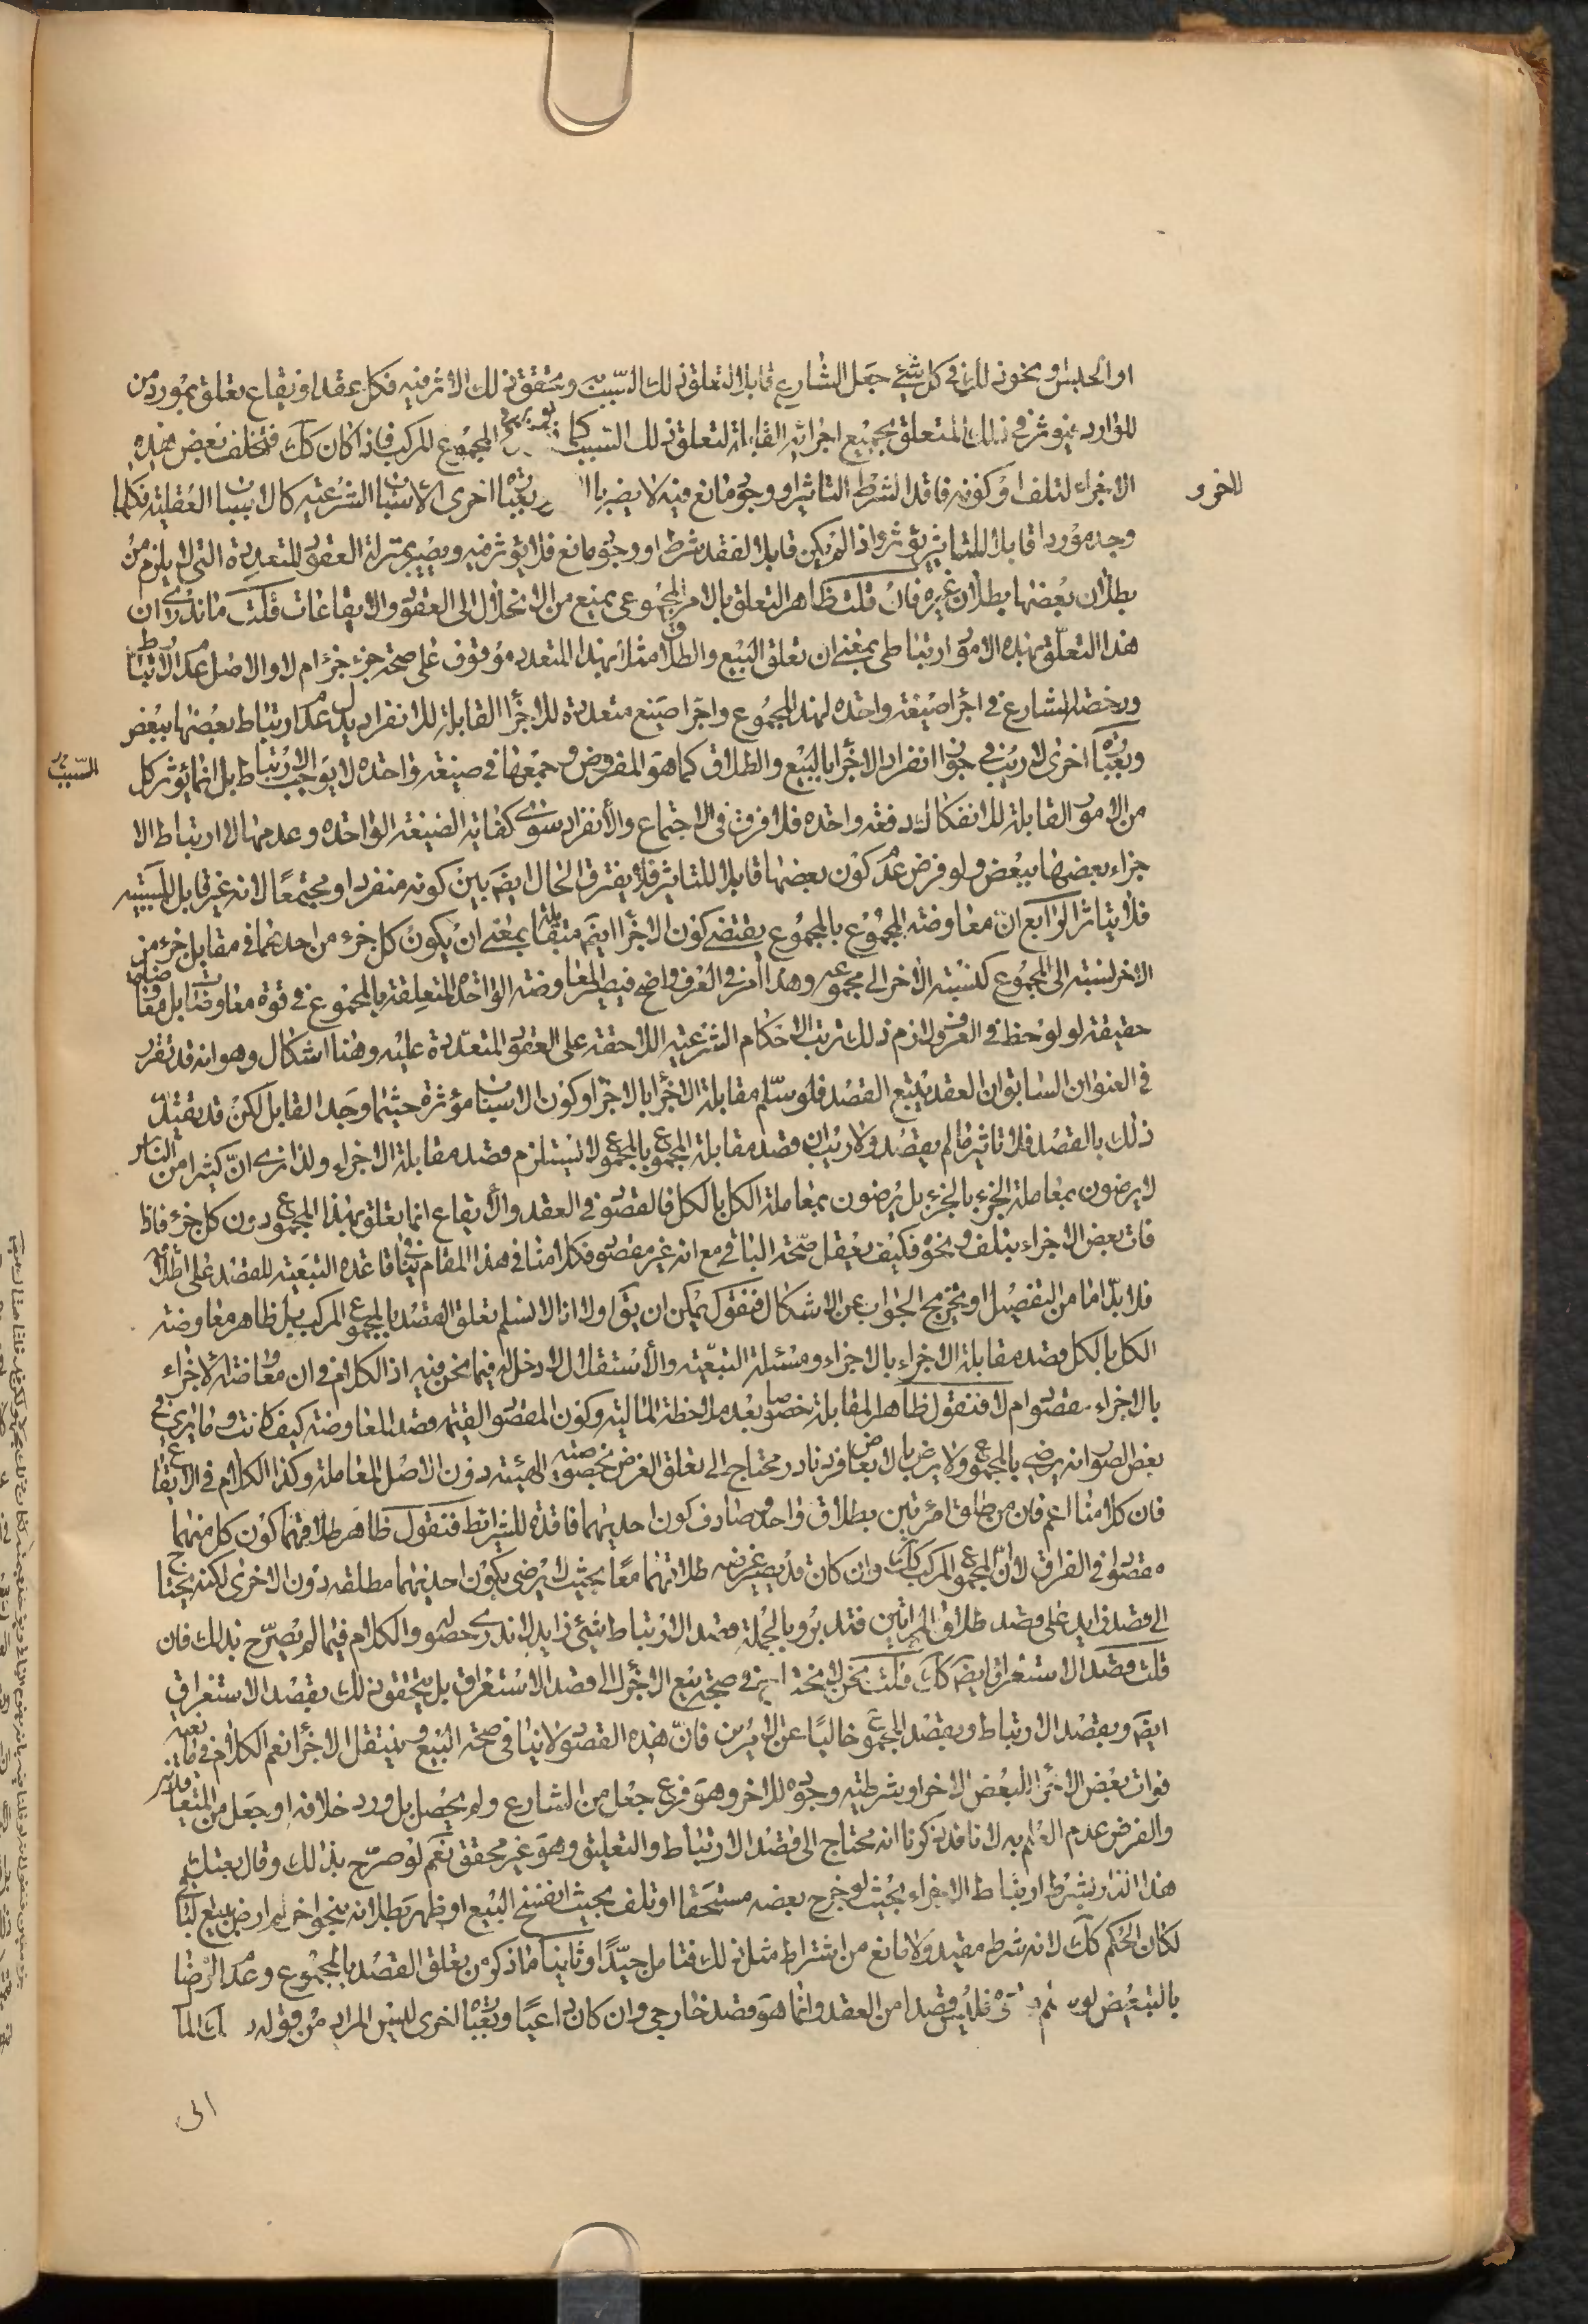 او الحبس او نحو ذلك في كل شيء جعل الشارع قابلا لتعلق ذلك السبب به وتحقق ذلك الاثر فيه فكل عقد او ايقاع تعلق بمورد من
الموارد فيؤثر في ذلك المتعلق بجميع اجزائه القابلة لتعلق ذلك السبب كما يؤثر في المجموع المركب فاذا كان كك فتخلف بعض هذه
الاجزاء لتلف او كونه فاقدا لشرط التاثير او وجود مانع فيه لا يضر بالاخر وبعبارة اخرى الاسباب الشرعية كالاسباب العقلية فكلما
وجد موردا قابلا للتاثير يؤثر واذا لم يكن قابلا لفقد شرط او وجود مانع فلا يؤثر فيه ويصير بمنزلة العقود المتعددة التي لم يلزم من
بطلان بعضها بطلان غيره فان قلت ظاهر التعلق بالامر المجموعي يمنع من الانحلال الى العقود والايقاعات قلت ما ندري ان
هذا التعلق بهذه الامور ارتباطي بمعنى ان تعلق البيع والطلاق مثلا بهذا المتعدد موقوف على صحة جزء جزء ام لا والاصل عدم الارتباط
ورخصة الشارع في اجراء صيغة واحدة لهذا المجموع واجراء صيغ متعددة للاجزاء القابلة للانفراد يدل على عدم ارتباط بعضها ببعض
وبعبارة اخرى لا ريب في جواز انفراد الاجزاء بالبيع والطلاق كما هو المفروض وجمعها في صيغة واحدة لا يوجب الارتباط بل انما يؤثر كل
السبب في
من الامور القابلة للانفكاك دفعة واحدة فلا فرق في الاجتماع والانفراد سوى كفاية الصيغة الواحدة وعدمها لا ارتباط الا
جزاء بعضها ببعض ولو فرض عدم كون بعضها قابلا للتاثير فلا يفترق الحال ايضا بين كونه منفردا او مجتمعا لانه غير قابل للسببية
فلا يتاثر الرابع ان معاوضة المجموع بالمجموع يقتضي كون الاجزاء ايضا متقابلة بمعنى ان يكون كل جزء من احدهما في مقابل جزء من
الاخر لنسبته الى المجموع كنسبة الاخر الى مجموعه وهذا امر في العرف واضح فيصير المعاوضة الواحدة المتعلقة بالمجموع في قوة معاوضات بل معاوضات
حقيقة لو لوحظ في العرف ولازم ذلك ترتب الاحكام الشرعية اللاحقة على العقود المتعددة عليه وهنا اشكال وهو انه قد تقرر
في العنوان السابق ان العقد يتبع القصد فلو سلم مقابلة الاجزاء بالاجزاء وكون الاسباب مؤثرة حيثما وجد القابل لكن قد يقيد
ذلك بالقصد فلا تاثير ما لم يقصد ولا ريب ان قصد مقابلة المجموع بالمجموع لا يستلزم قصد مقابلة الاجزاء ولذا نرى ان كثيرا من الناس
لا يرضون بمعاملة الجزء بالجزء بل يرضون بمعاملة الكل بالكل فالمقصود في العقد والايقاع انما تعلق بهذا المجموع دون كل جزء فاذا
فات بعض الاجزاء بتلف ونحوه فكيف يعقل صحة الباقي مع انه غير مقصود فكلامنا في هذا المقام ينافي قاعدة التبعية للقصد على اطلاقها
فلا بد اما من التفصيل او تخريج الجواب عن الاشكال فنقول يمكن ان يق اولا انا لا نسلم تعلق القصد بالمجموع المركب بل ظاهر معاوضة
الكل بالكل قصد مقابلة الاجزاء بالاجزاء ومسئلة التبعية والاستقلال لا دخل له فيما نحن فيه اذ الكلام في ان معاوضة الاجزاء
بالاجزاء مقصود ام لا فنقول ظاهر المقابلة خصوصا بعد ملاحظة المالية وكون المقصود القيمة قصد المعاوضة كيف كانت وما نرى في
بعض الصور انه يرضى بالمجموع ولا يرغب بالابعاض فرد نادر محتاج الى تعلق الغرض بخصوصية الهيئة دون الاصل المعاملة وكذا الكلام في الايقاع
فان كلامنا اعم فان من طلق امرئتين بطلاق واحد وصادف كون احديهما فاقدة للشرائط فنقول ظاهر طلاقهما كون كل منهما
مقصودا في الفراق لا ان المجموع المركب كك وان كان قد يصير غرضه طلاقهما معا بحيث لا يرضى بكون احديهما مطلقة دون الاخرى لكنه يحتاج
الى قصد زايد على قصد طلاق المرئتين فتدبر وبالجملة قصد الارتباط شيء زايد لا ندري حصوله والكلام فيما لم يصرح بذلك فان
قلت قصد الاستغراق ايضا كك قلت نحن لا نحتاج في صحة بيع الاجزاء الى قصد الاستغراق بل يتحقق ذلك بقصد الاستغراق
ايضا وبقصد الارتباط وبقصد المجموع خاليا عن الامرين فان هذه القصود لا ينافي صحة البيع وينتقل الاجزاء نعم الكلام في مانعية
فوات بعض الاجزاء للبعض الاخر او شرطية وجوده للاخر وهو فرع جعل من الشارع ولم يحصل بل ورد خلافه او جعل من المتعاقدين
والفرض عدم العلم به لانا قد ذكرنا انه محتاج الى قصد الارتباط والتعليق وهو غير محقق نعم لو صرح بذلك وقال بعتك
هذا الدار بشرط ارتباط الاجزاء بحيث لو خرج بعضه مستحقا او تلف بحيث انفسخ البيع او ظهر بطلانه بنحو اخر لم ارض ببيع الباقي
لكان الحكم كك لانه شرط مقيد ولا مانع من اشتراط مثل ذلك فتامل جيدا وثانيا ما ذكر من تعلق القصد بالمجموع وعدم الرضا
بالتبعيض لو فليس قصدا من العقد وانما هو قصد خارجي وان كان داعيا وبعبارة اخرى ليس المراد من قوله
الى